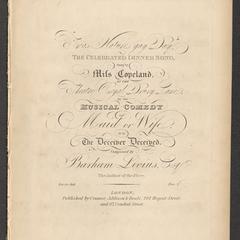 The Celebrated Dinner Song,
Miss Copeland,
AT THE
Theatre Royal, Drury Lane,
MUSICAL COMEDY
Maid or Wife
OR
The Deceiver Deceived,
Composed by
Barham Livius, Esqr.
The Author of the
LONDON,
Published by Cramer, Addison & Beale, 201 Regent Street
and 67, Conduit Street